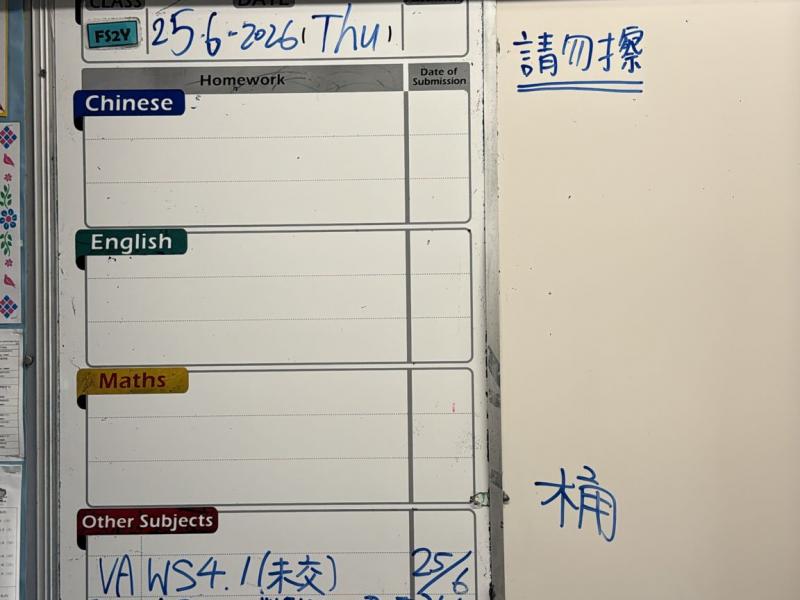 CLASS DATE
FS2Y 25.6-2026 (Thu)
Homework Date of Submission
Chinese
English
Maths
Other Subjects
VA WS4.1(未交) 25/6
請勿擦
桶